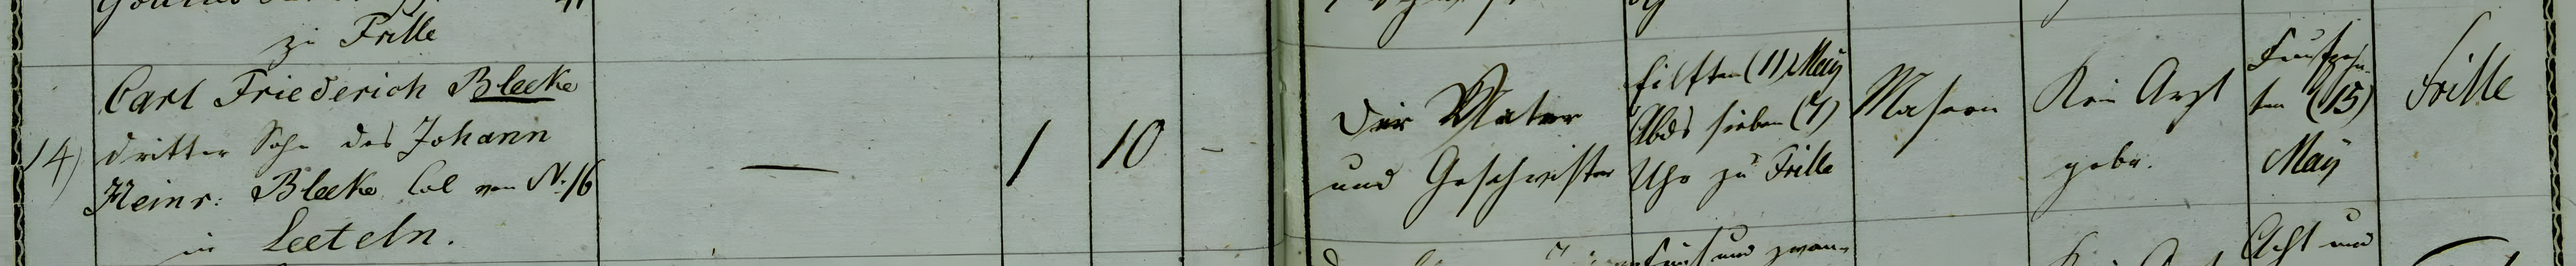 zu Frille
14) Carl Friederich Bleeke
dritter Sohn des Johann
Heinr: Bleeke Col von N. 16
in Leeteln.
—
1 10 -
Der Vater
und Geschwister
Eilften (11) May
Abds sieben (7)
Uhr zu Frille
Masern
Kein Arzt
gebr.
Funfzehn-
ten (15)
May
Frille
Fünf und zwan-
Acht und